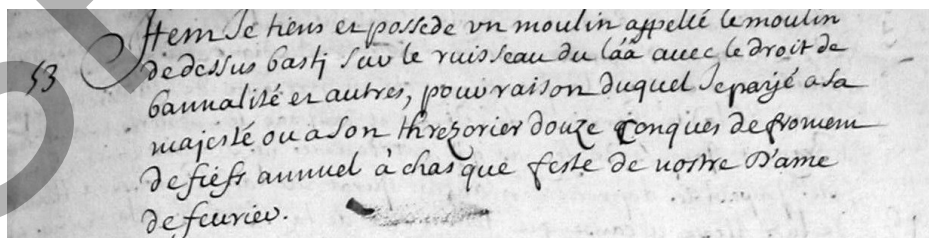 Item Je tiens et possede vn moulin appellé le moulin
53 de dessus basti sur le ruisseau du láá auec le droit de
bannalité et autres, pour raison duquel Je payé a sa
majesté ou a son threzorier douze Conques de froment
de fiefs annuel à chasque feste de nostre Dame
de feurier.